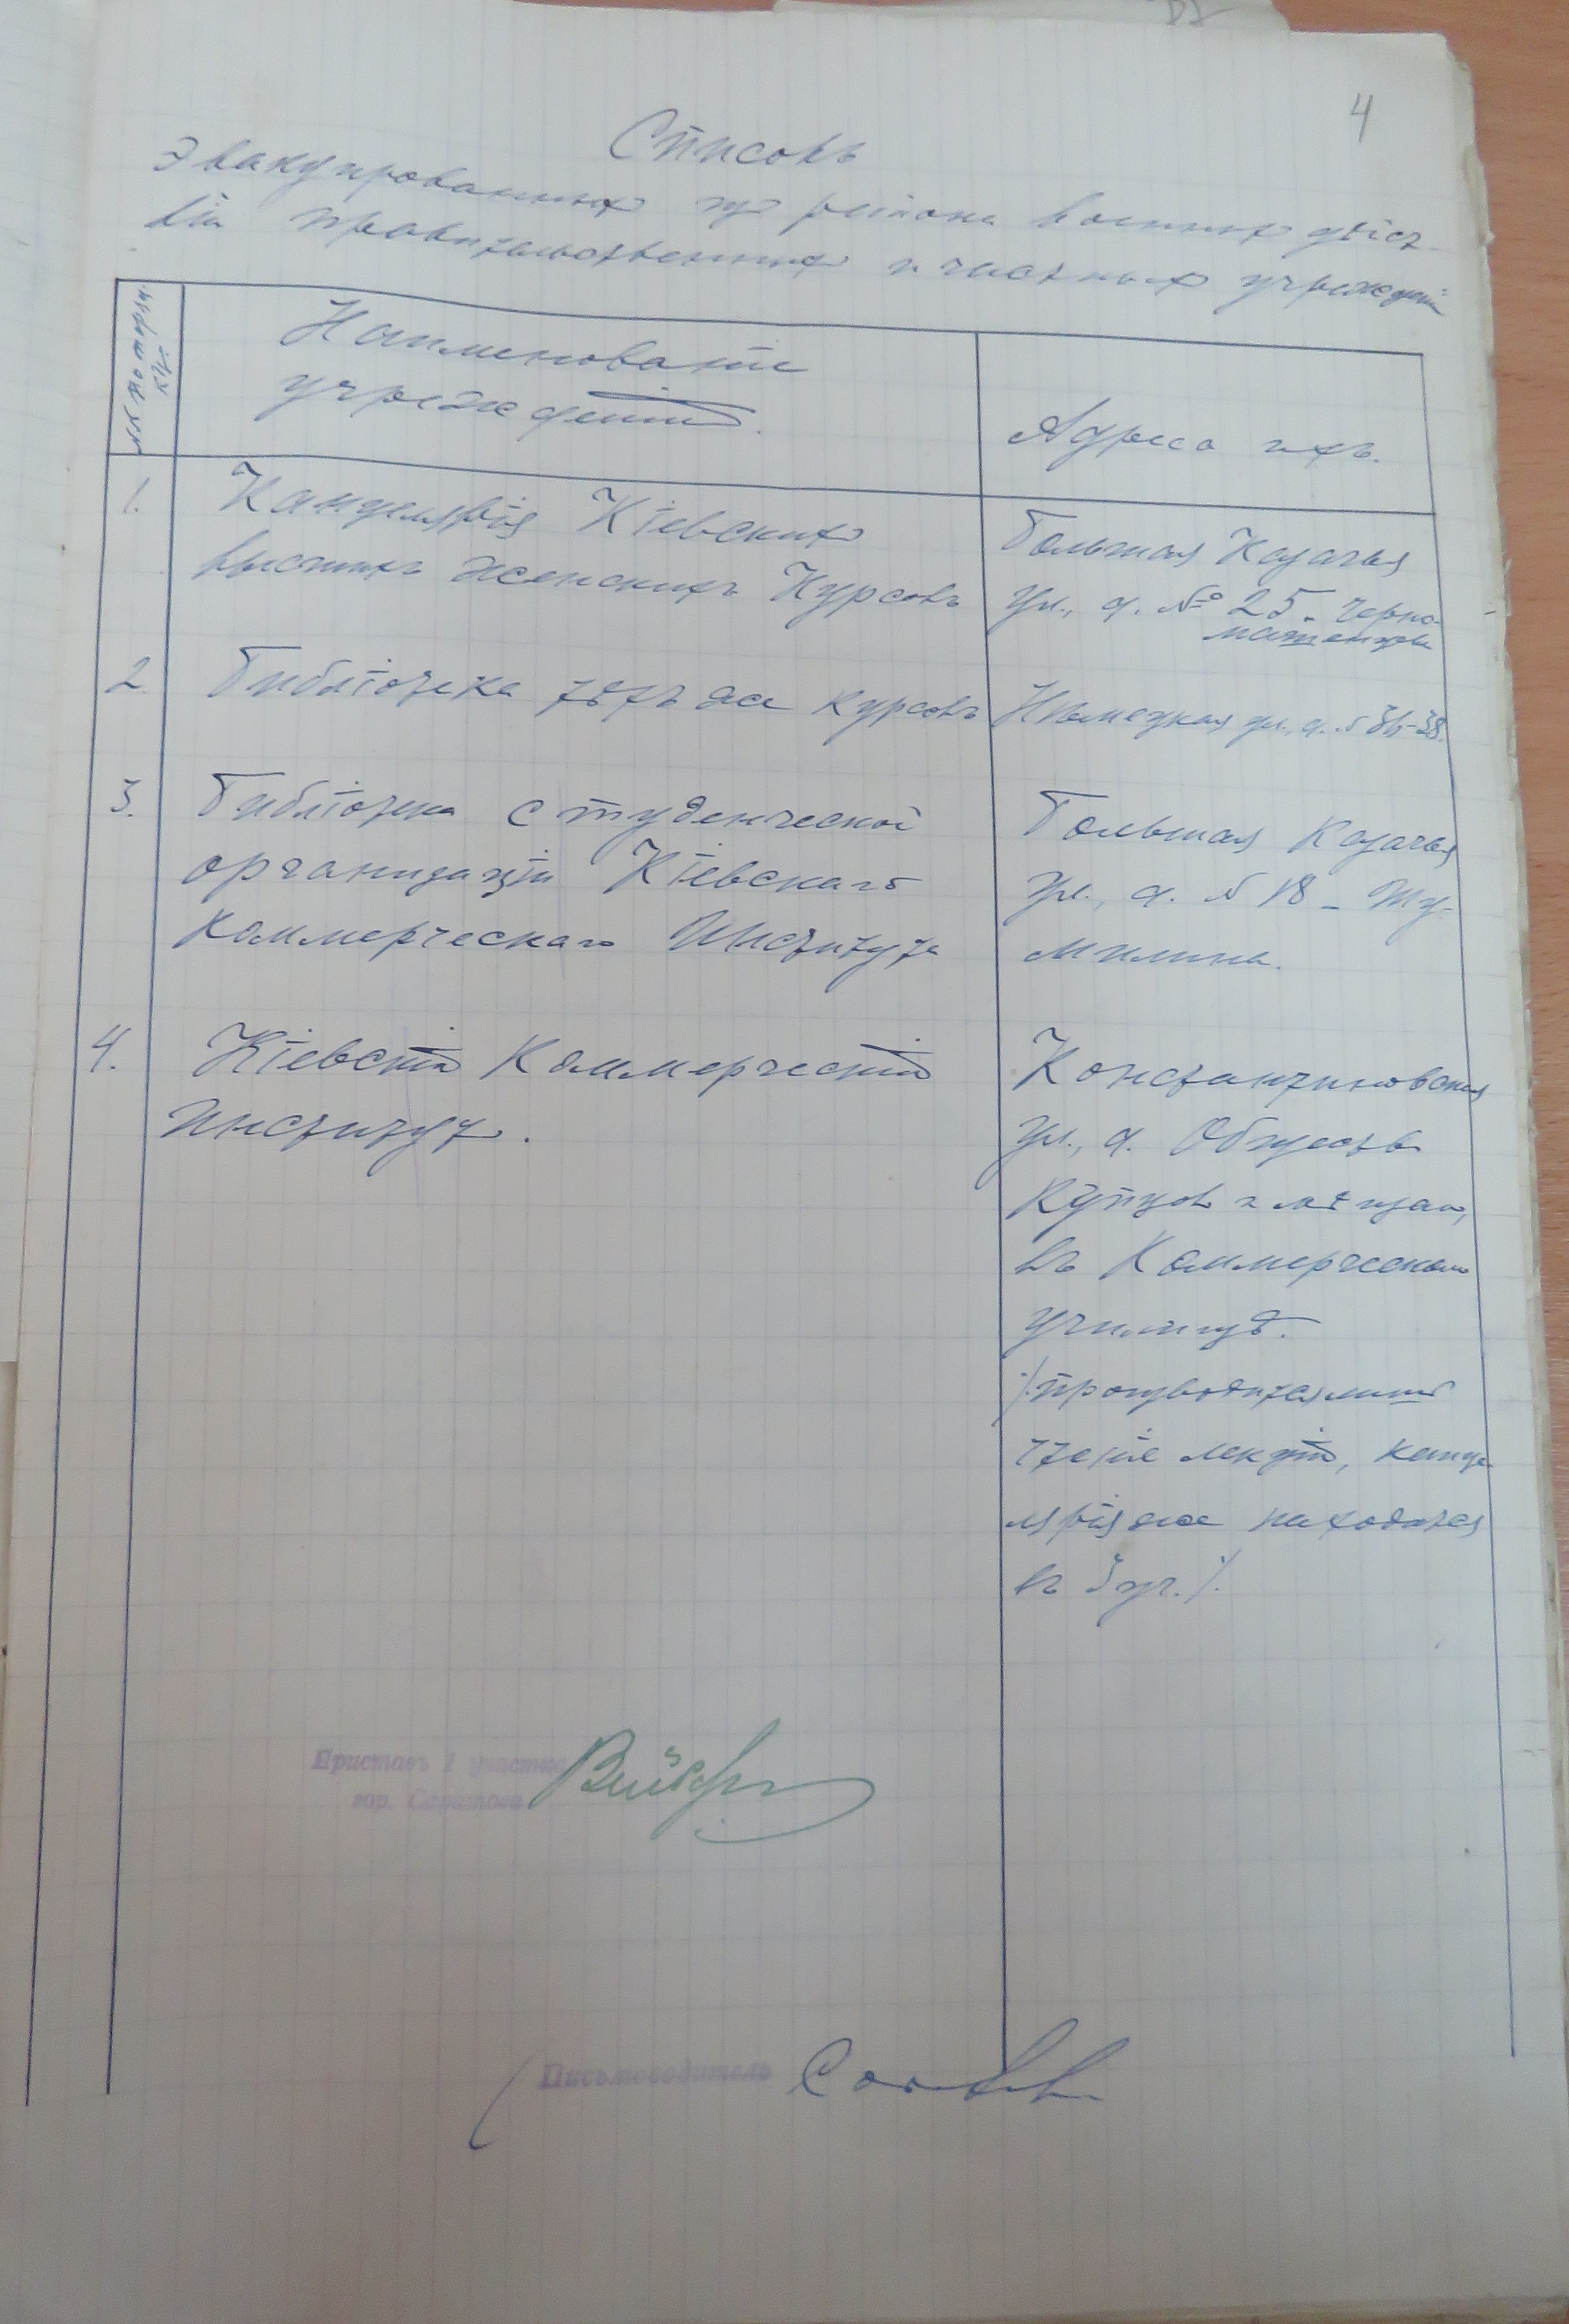 4
Списокъ
Эвакуированныхъ изъ района военныхъ дѣйст-
вiй правительственныхъ и частныхъ учрежденiй
№№ по поряд-
ку.
Наименованiе
учрежденiй.
Адреса ихъ.
1.
Канцелярiя Кiевскихъ
высшихъ женскихъ Курсовъ
Большая Казачья
ул., д. № 25 - Черно-
машенцева
2.
Библiотека тѣхъ же курсовъ
Нѣмецкая ул., д. № 36-38.
3.
Библiотека студенческой
организацiи Кiевскаго
Коммерческаго Института
Большая Казачья
ул., д. № 18 - Шу-
милина.
4.
Кiевскiй Коммерческiй
Институтъ.
Константиновская
ул., д. Общества
Купцовъ и мѣщанъ,
въ Коммерческомъ
училищѣ.
/:производится лишь
чтенiе лекцiй, канце-
лярiя же находится
въ 3 уч.:/.
Приставъ 1 участка
гор. Саратова
Письмоводитель